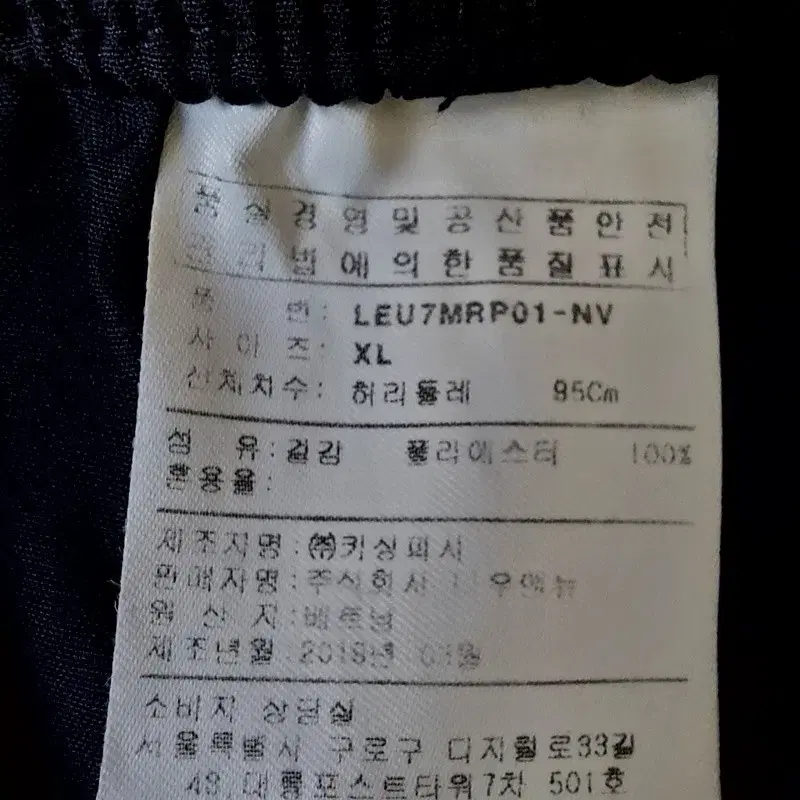 품질경영및공산품안전
관리법에의한품질표시
품 번: LEU7MRP01-NV
사 이 즈: XL
신체치수: 허리둘레 95Cm
섬 유: 겉감 폴리에스터 100%
혼용율:
제조자명:㈜키싱피시
판매자명:주식회사
원 산 지:베트남
제조년월:2018년
소비자 상담실
서울특별시 구로구 디지털로33길
48,대륭포스트타워7차 501호